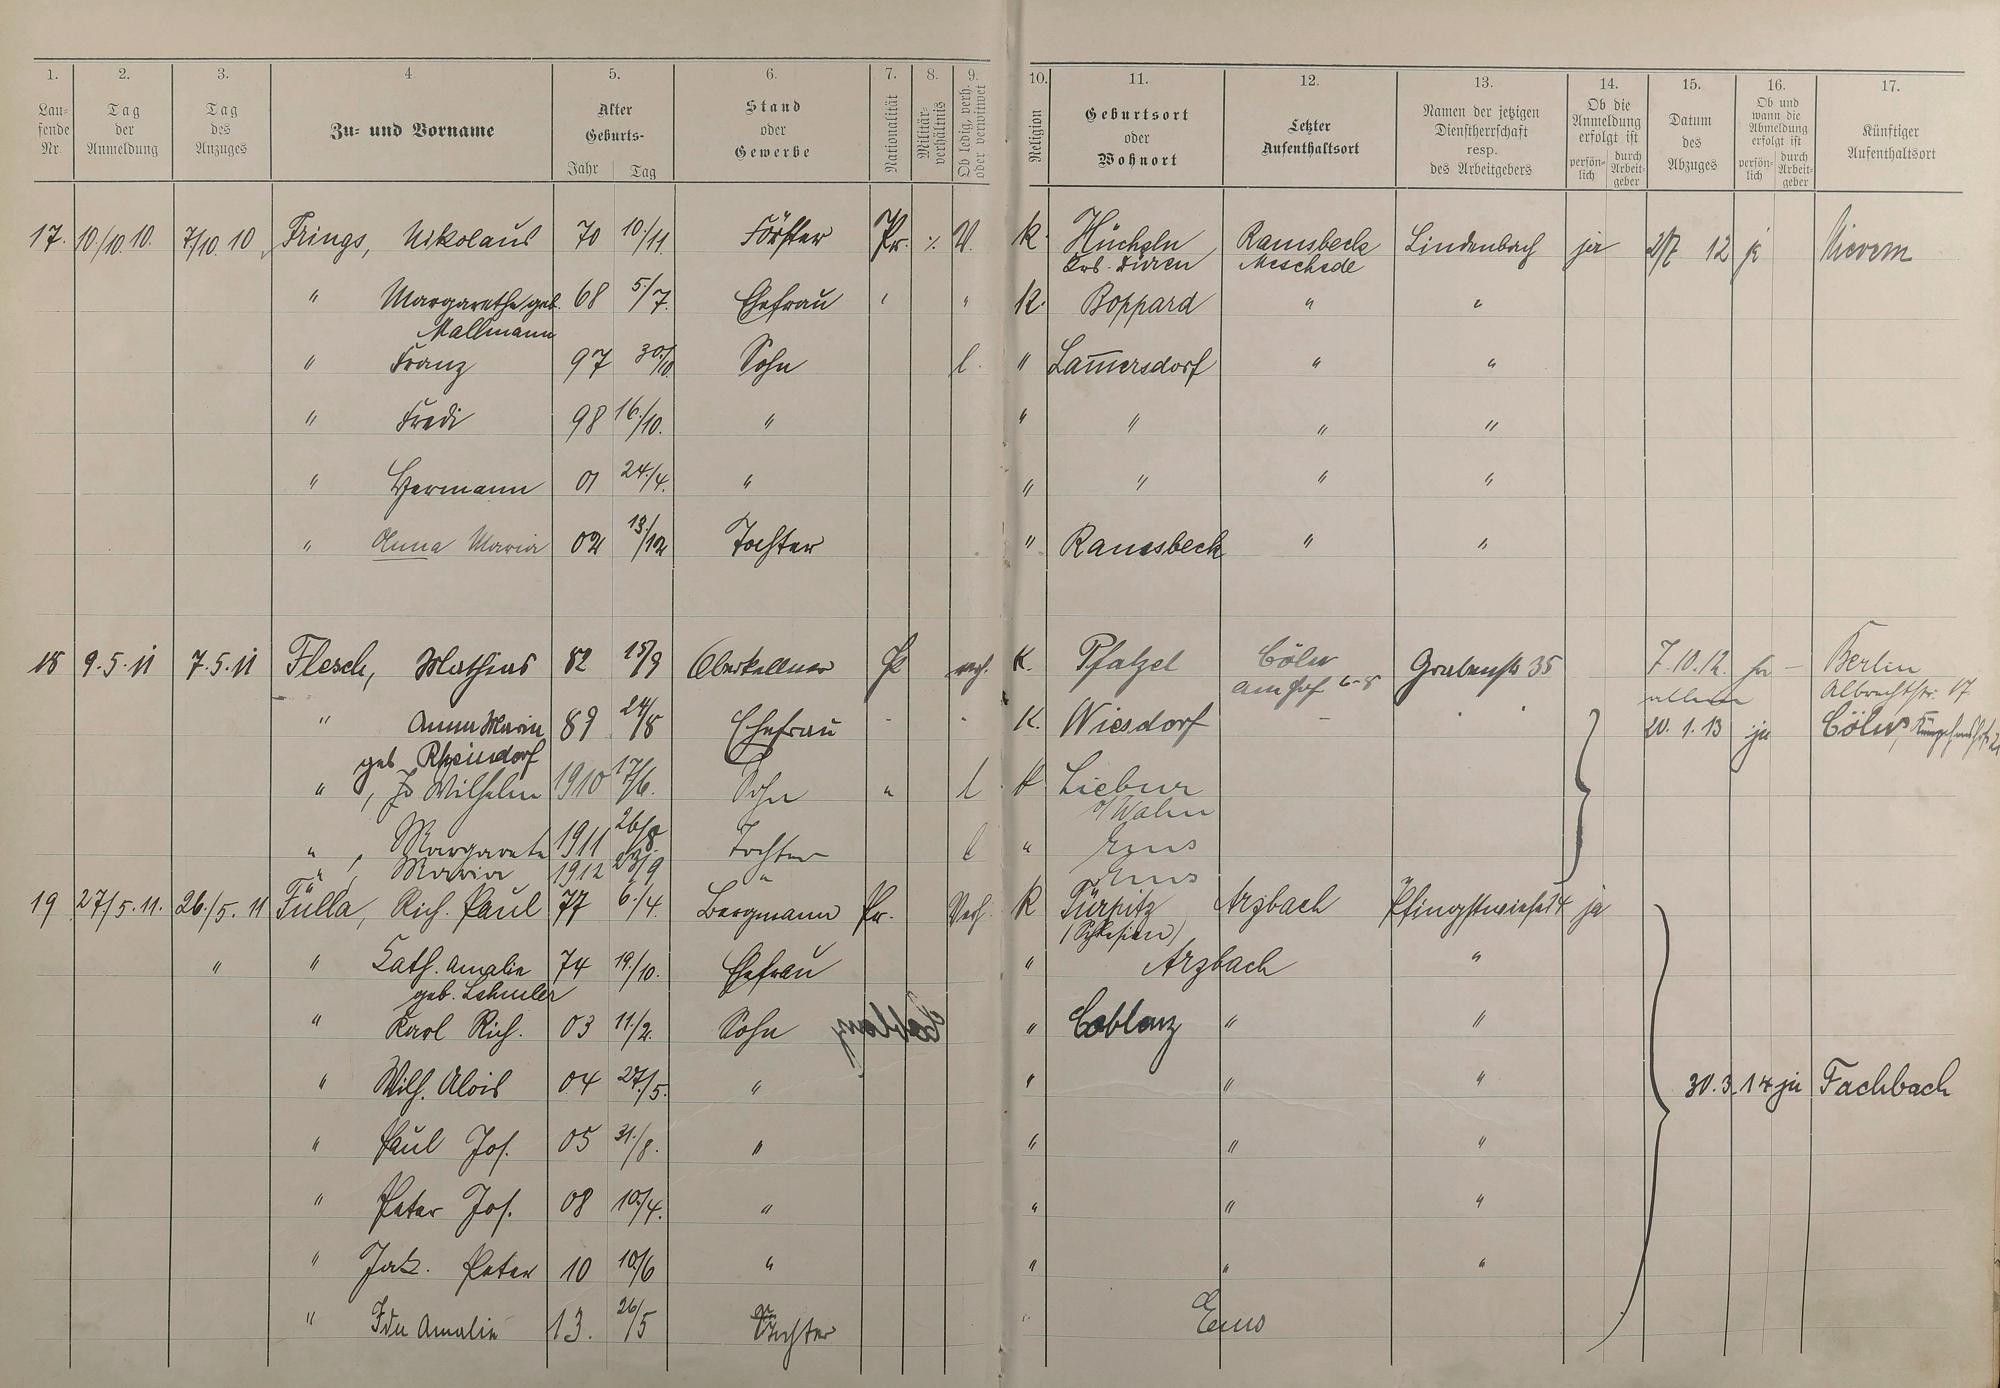 1. 2. 3. 4 5. 6. 7. 8. 9. 10. 11. 12. 13. 14. 15. 16. 17.
Lau-
fende
Nr.
Tag
der
Anmeldung
Tag
des
Anzuges
Zu- und Vorname
Alter
Geburts-
Jahr Tag
Stand
oder
Gewerbe
Nationalität
Militär-
verhältnis
Ob ledig, verh.
oder verwitwet
Religion
Geburtsort
oder
Wohnort
Letzter
Aufenthaltsort
Namen der jetzigen
Dienstherrschaft
resp.
des Arbeitgebers
Ob die
Anmeldung
erfolgt ist
persön-
lich
durch
Arbeit-
geber
Datum
des
Abzuges
Ob und
wann die
Abmeldung
erfolgt ist
persön-
lich
durch
Arbeit-
geber
Künftiger
Aufenthaltsort
17. 10./10. 10. 7/10. 10 Frings, Nikolaus 70 10/11. Förster Pr. ⁒ V. K. Hücheln Ramsbeck Lindenbach ja 2/7 12 ja Nievern
Krs. Düren Meschede
" Margarethe geb. 68 5/7. Ehefrau " " K. Boppard " "
Mallmann
" Franz 97 30./10. Sohn l. " Lam̅ersdorf " "
" Fredi 98 16./10. " " " " "
" Hermann 01 24./4. " " " " "
" Anna Maria 02 13/12 Tochter " Ramsbeck " "
18 9. 5. 11 7. 5. 11 Flesch, Mathias 82 15/9 Oberkellner Pr verh. K. Pfalzel Cöln Grabenstr 35 7. 10. 12. ja – Berlin
am Hof 6-8 allein Albrechtstr. 17
" Anna Maria 89 24/8 Ehefrau - " K. Wiesdorf - " " 20. 1. 13 ja Cöln,
geb Rheindorf
" , Wilhelm 1910 17/6. Sohn " l K Liebur
b/Wahn
" , Margarete 1911 26/8. Tochter l " Ems
" , Maria 1912 /9 " Ems
19 27/5. 11. 26./5. 11 Fülla, Rich. Paul 77 6./4. Bergmann Pr. Verh. K Türpitz Arzbach Pfingstwiese 14 ja
(Schlesien)
" " Cath. Amalie 74 19./10. Ehefrau " Arzbach "
geb. Lehmler
" Karl Rich. 03 11./2. Sohn " Coblenz " "
" Wilh. Alois 04 27./5. " " " " 30. 3. 14 ja Fachbach
" Paul Jos. 05 31./8. " " " "
" Peter Jos. 08 10./4. " " " "
" Jak. Peter 10 10./6 " " " "
" Ida Amalie 13. 26/5 Tochter " Ems